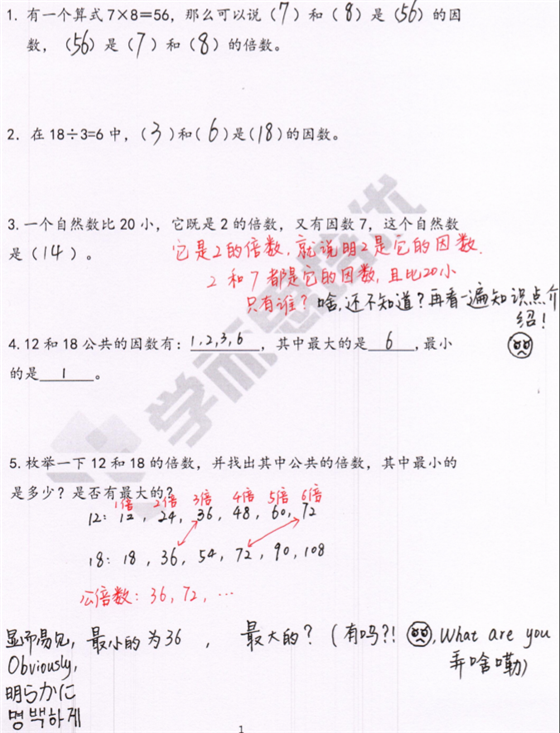 1. 有一个算式 7×8＝56，那么可以说（7）和（8）是（56）的因
数，（56）是（7）和（8）的倍数。
2. 在 18÷3=6 中，（3）和（6）是（18）的因数。
3. 一个自然数比 20 小，它既是 2 的倍数，又有因数 7，这个自然数
是（14）。
它是2的倍数，就说明2是它的因数.
2 和 7 都是它的因数, 且比20小
只有谁？啥,还不知道？再看一遍知识点介
绍！
4. 12 和 18 公共的因数有：1,2,3,6，其中最大的是 6 ,最小
的是 1 。
5. 枚举一下 12 和 18 的倍数，并找出其中公共的倍数，其中最小的
是多少？是否有最大的？
1倍 2倍 3倍 4倍 5倍 6倍
12: 12, 24, 36, 48, 60, 72
18: 18, 36, 54, 72, 90, 108
公倍数: 36, 72, …
显而易见, 最小的为36 , 最大的？(有吗?! , What are you
Obviously, 弄啥嘞)
明らかに
명백하게
学而思培优
1